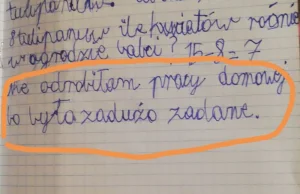 tulipanów.
tulipanów ile kwiatów rośnie
w ogrodzie babci? 15-8=7
nie odrobiłam pracy domowej
bo była zadużo zadane.